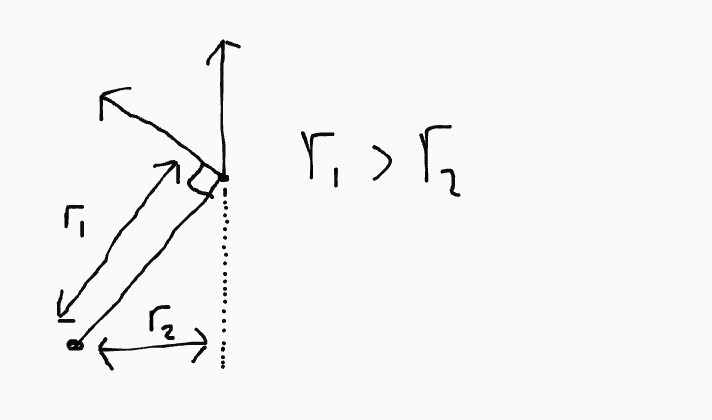 r₁ > r₂
r₁
r₂